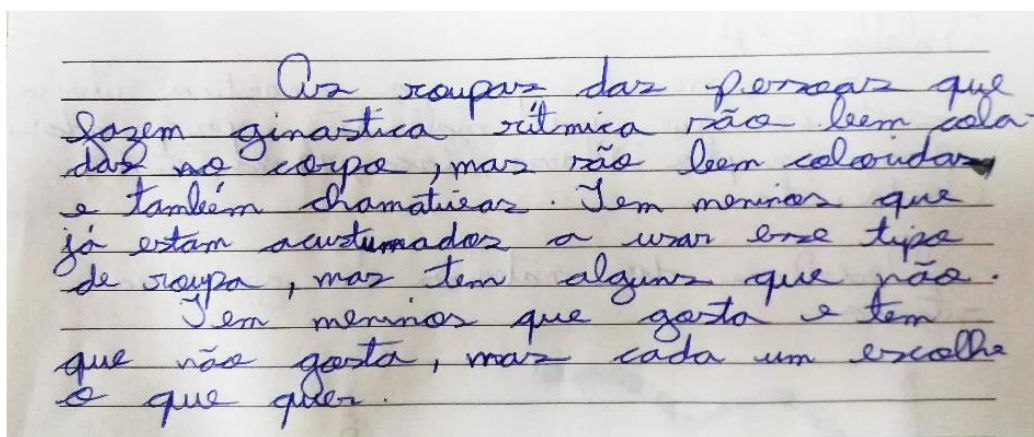 As roupas das pessoas que
fazem ginastica rítmica são bem cola-
das no corpo, mas são bem coloridas,
e também chamativas. Tem meninos que
já estam acustumados a usar esse tipo
de roupa, mas tem alguns que não.
Tem meninos que gosta e tem
que não gosta, mas cada um escolhe
o que quer.